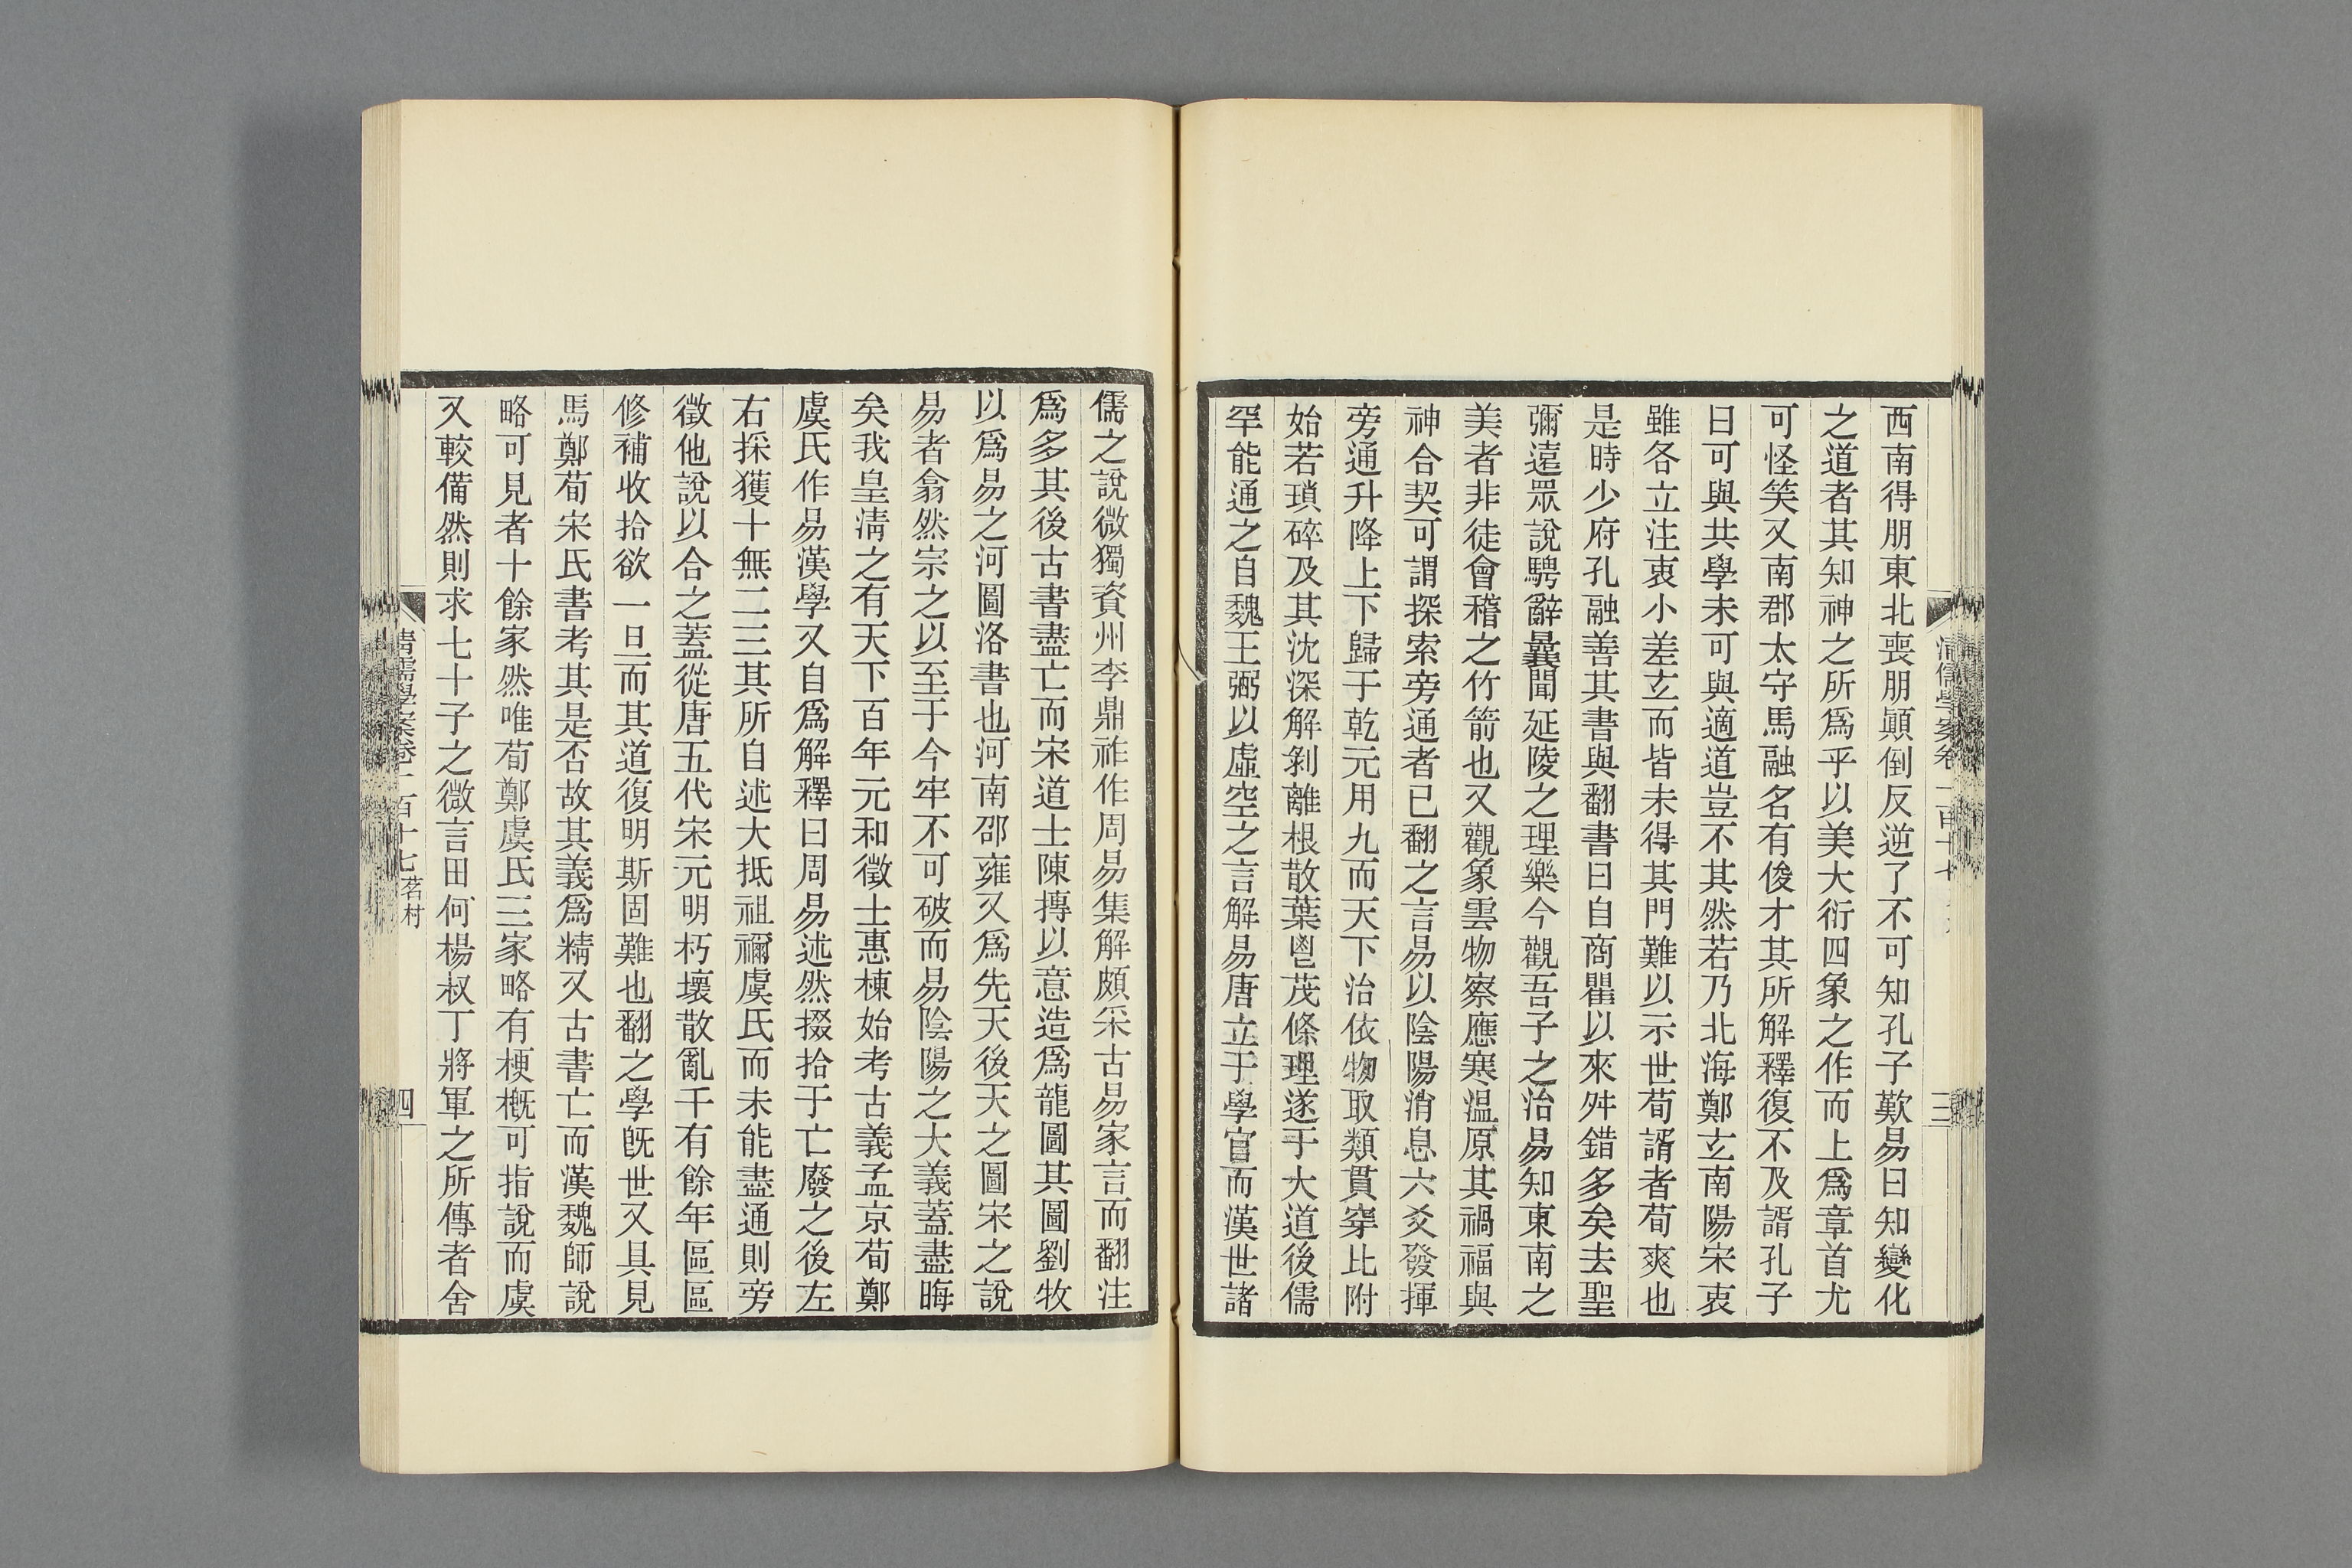 西南得朋東北喪朋顚倒反逆了不可知孔子歎易曰知變化
之道者其知神之所爲乎以美大衍四象之作而上爲章首尤
可怪笑又南郡太守馬融名有俊才其所解釋復不及諝孔子
曰可與共學未可與適道豈不其然若乃北海鄭玄南陽宋衷
雖各立注衷小差玄而皆未得其門難以示世荀諝者荀爽也
是時少府孔融善其書與翻書曰自商瞿以來舛錯多矣去聖
彌遠眾說騁辭曩聞延陵之理樂今觀吾子之治易知東南之
美者非徒會稽之竹箭也又觀象雲物察應寒溫原其禍福與
神合契可謂探索旁通者已翻之言易以陰陽消息六爻發揮
旁通升降上下歸于乾元用九而天下治依物取類貫穿比附
始若瑣碎及其沈深解剝離根散葉鬯茂條理遂于大道後儒
罕能通之自魏王弼以虛空之言解易唐立于學官而漢世諸
清儒學案卷一百十七
三
儒之說微獨資州李鼎祚作周易集解頗采古易家言而翻注
爲多其後古書盡亡而宋道士陳摶以意造爲龍圖其圖劉牧
以爲易之河圖洛書也河南邵雍又爲先天後天之圖宋之說
易者翕然宗之以至于今牢不可破而易陰陽之大義蓋盡晦
矣我皇淸之有天下百年元和徵士惠棟始考古義孟京荀鄭
虞氏作易漢學又自爲解釋曰周易述然掇拾于亡廢之後左
右採獲十無二三其所自述大抵祖禰虞氏而未能盡通則旁
徵他說以合之蓋從唐五代宋元明朽壞散亂千有餘年區區
修補收拾欲一旦而其道復明斯固難也翻之學旣世又具見
馬鄭荀宋氏書考其是否故其義爲精又古書亡而漢魏師說
略可見者十餘家然唯荀鄭虞氏三家略有梗槪可指說而虞
又較備然則求七十子之微言田何楊叔丁將軍之所傳者舍
清儒學案卷一百十七 茗村
四